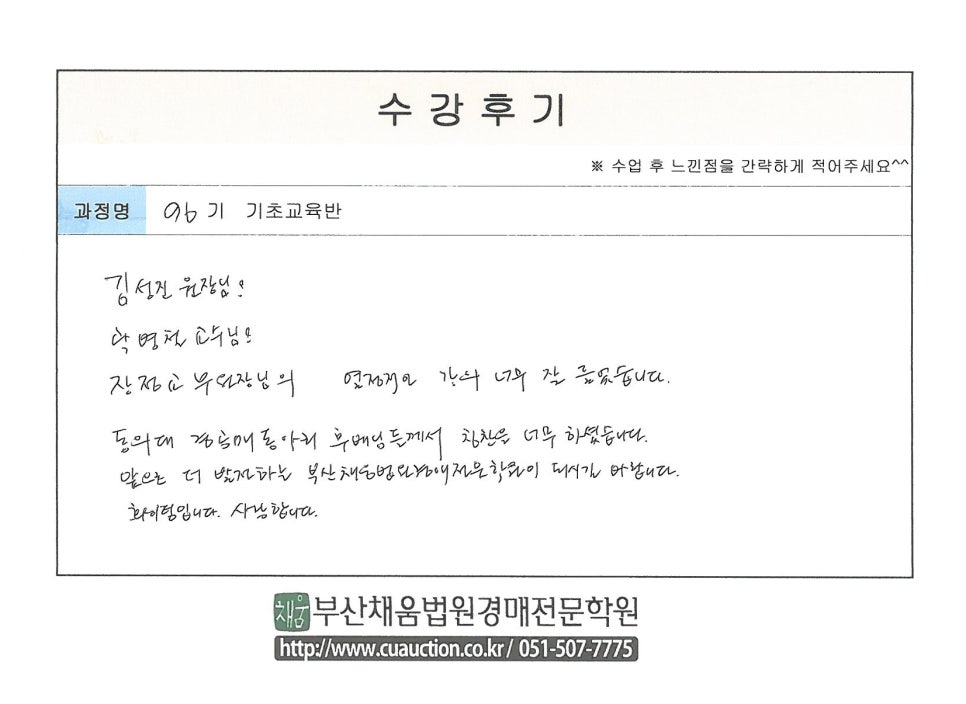 수강후기
※ 수업 후 느낀점을 간략하게 적어주세요^^
과정명 96기 기초교육반
김성진 원장님!
박명철 교수님!
장정교 부원장님의 열정적인 강의 너무 잘 들었습니다.
동의대 경매동아리 후배님들께서 칭찬을 너무 하셨습니다.
앞으로 더 발전하는 부산채움법원경매전문학원이 되시길 바랍니다.
화이팅입니다. 사랑합니다.
채움 부산채움법원경매전문학원
http://www.cuauction.co.kr / 051-507-7775